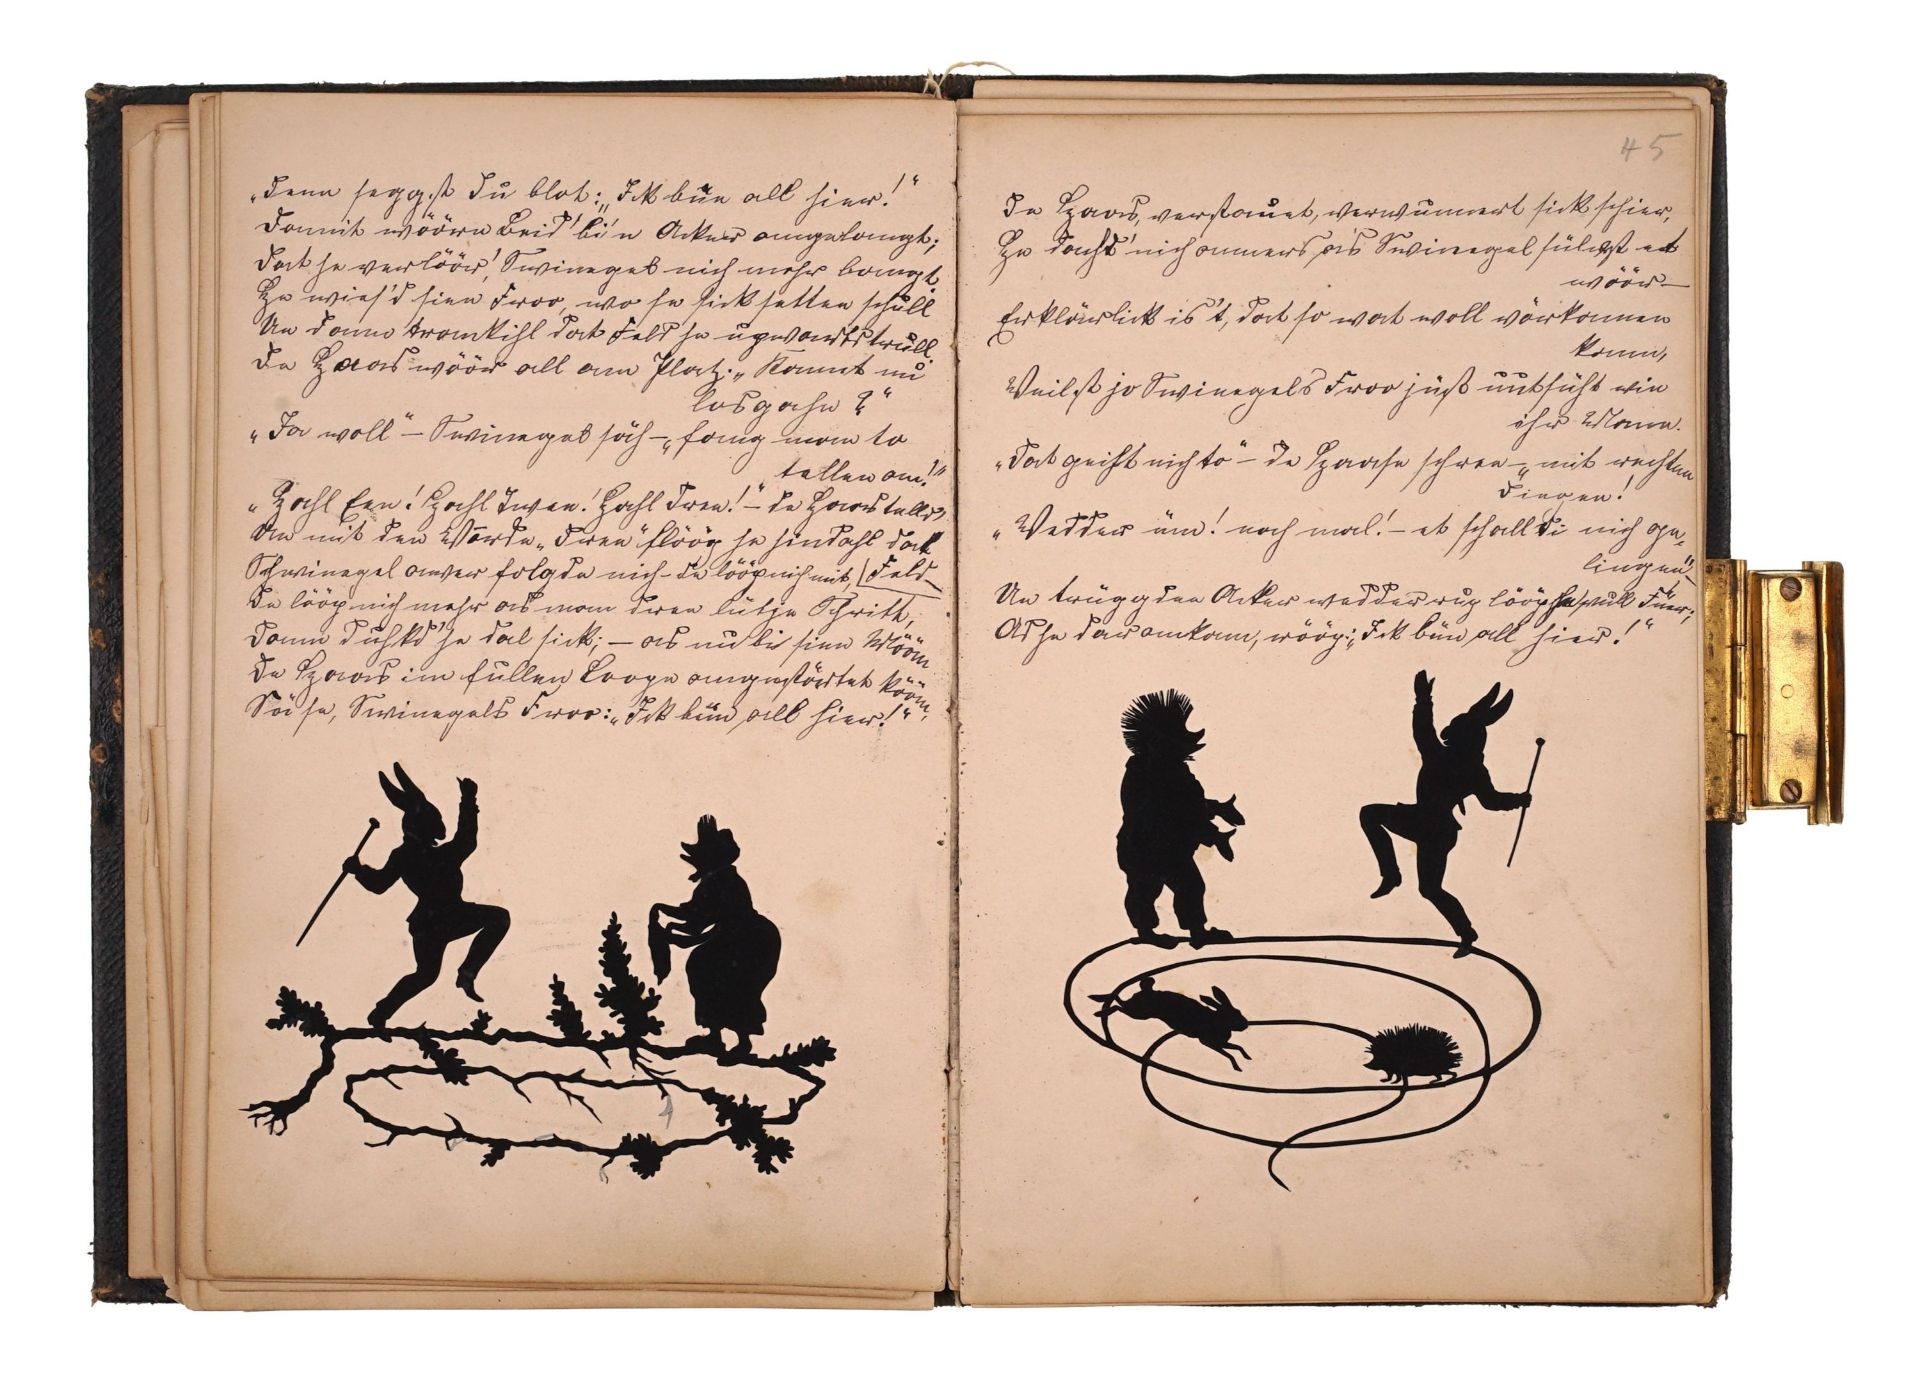 „Denn seggst Du blot: „Ick bün all hier!“
Damit wöörn Beid' bi'n Acker angelangt;
Dat he verlöör', Swinegel nich mehr bangt
He wies'd sien Froo, wo se sick setten schull
Un dann dat Feld he upwarts trull.
De Haas wöör all am Platz: „Kannt nu
losgahn?“
„Ja woll“ – Swinegel säh –, „fang man to
tellen an!“
„Hahl Een! Hahl Twee! Hahl Dree!“ – de Haas tellt,
Un mit den Wörde „Dree“ flöög he hendahl dat
Feld –
Schwinegel awer folgde nich – De lööp nich mit,
De lööp nich mehr as man dree lütje Schritt,
Dann duhkd' he dal sick; – as nu bi sien Mööm
De Haas im fullen Loope angestörtet kööm,
Säh se, Swinegels Froo: „Ick bün all hier!“
45
De Haas, verstaunt, verwunnert sick schier,
He dacht' nich anners as Swinegel sülvst et
wöör –
Erklärlick is't, dat so wat woll vörkamen
kann,
Weilst jo Swinegels Froo jüst uutsüht wie
ihr Mann.
„Dat geiht nich to“ – De Haase schree –, „mit rechten
Dingen!
„Wedder üm! noch mal! – et schall Di nich ge-
lingen“ –
Un trügg den Acker wedder rup lööp he vull Füer;
As he dar ankam, rööp: „Ick bün all hier!“